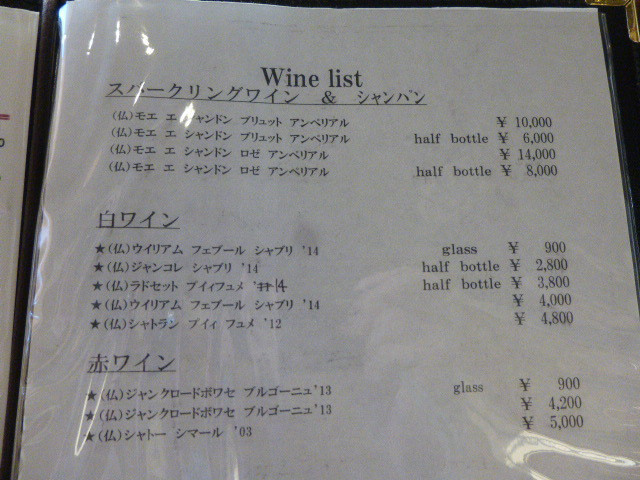 Wine list
スパークリングワイン ＆ シャンパン
(仏)モエ エ シャンドン ブリュット アンペリアル ￥ 10,000
(仏)モエ エ シャンドン ブリュット アンペリアル half bottle ￥ 6,000
(仏)モエ エ シャンドン ロゼ アンペリアル ￥ 14,000
(仏)モエ エ シャンドン ロゼ アンペリアル half bottle ￥ 8,000
白ワイン
★(仏)ウイリアム フェブール シャブリ '14 glass ￥ 900
★(仏)ジャンコレ シャブリ '14 half bottle ￥ 2,800
★(仏)ラドセット プイィフュメ '14 half bottle ￥ 3,800
★(仏)ウイリアム フェブール シャブリ '14 ￥ 4,000
★(仏)シャトラン プイィ フュメ '12 ￥ 4,800
赤ワイン
★(仏)ジャンクロードボワセ ブルゴーニュ'13 glass ￥ 900
★(仏)ジャンクロードボワセ ブルゴーニュ'13 ￥ 4,200
★(仏)シャトー シマール '03 ￥ 5,000